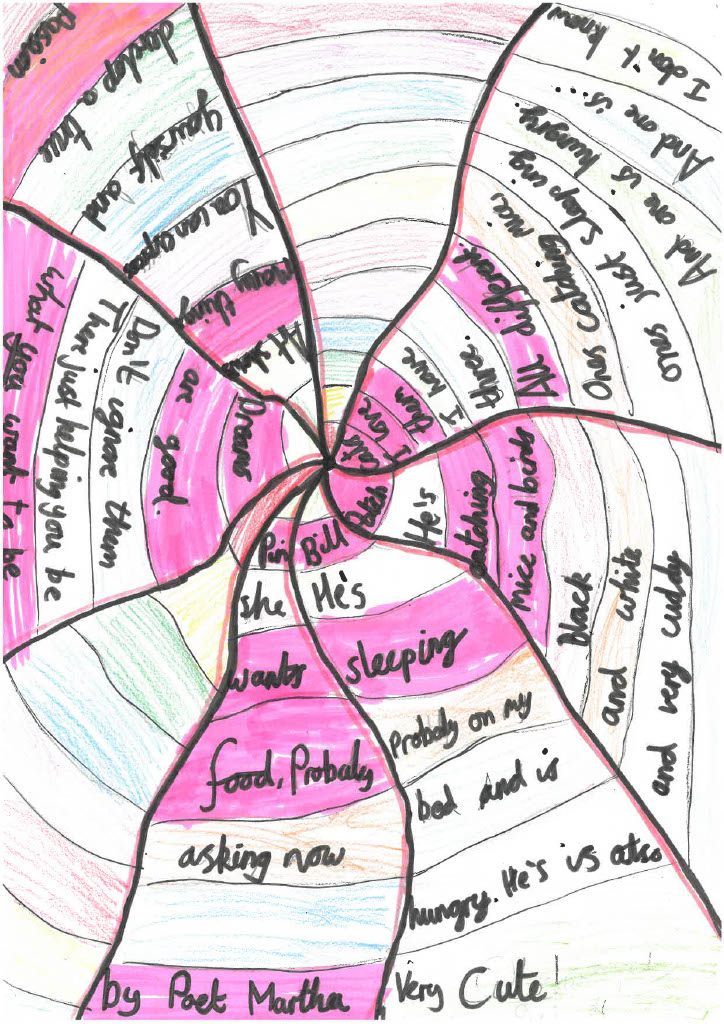 Cats
I love
them
I have
three.
All different.
Ones catching mice
ones just sleeping
And one is hungry
And one is...
I don't know
Patch
He's
catching
mice and birds
black
and white
and very cuddy
Bill
He's
sleeping
Probaly on my
bed and is
hungry. He's is also
Very Cute!
she
wants
food, Probaly
asking now
by Poet Martha
Dreams
are good.
Don't ignore them
Their just helping you be
what you want to be
many thing
You can express
yourself and
develop a true
Passion